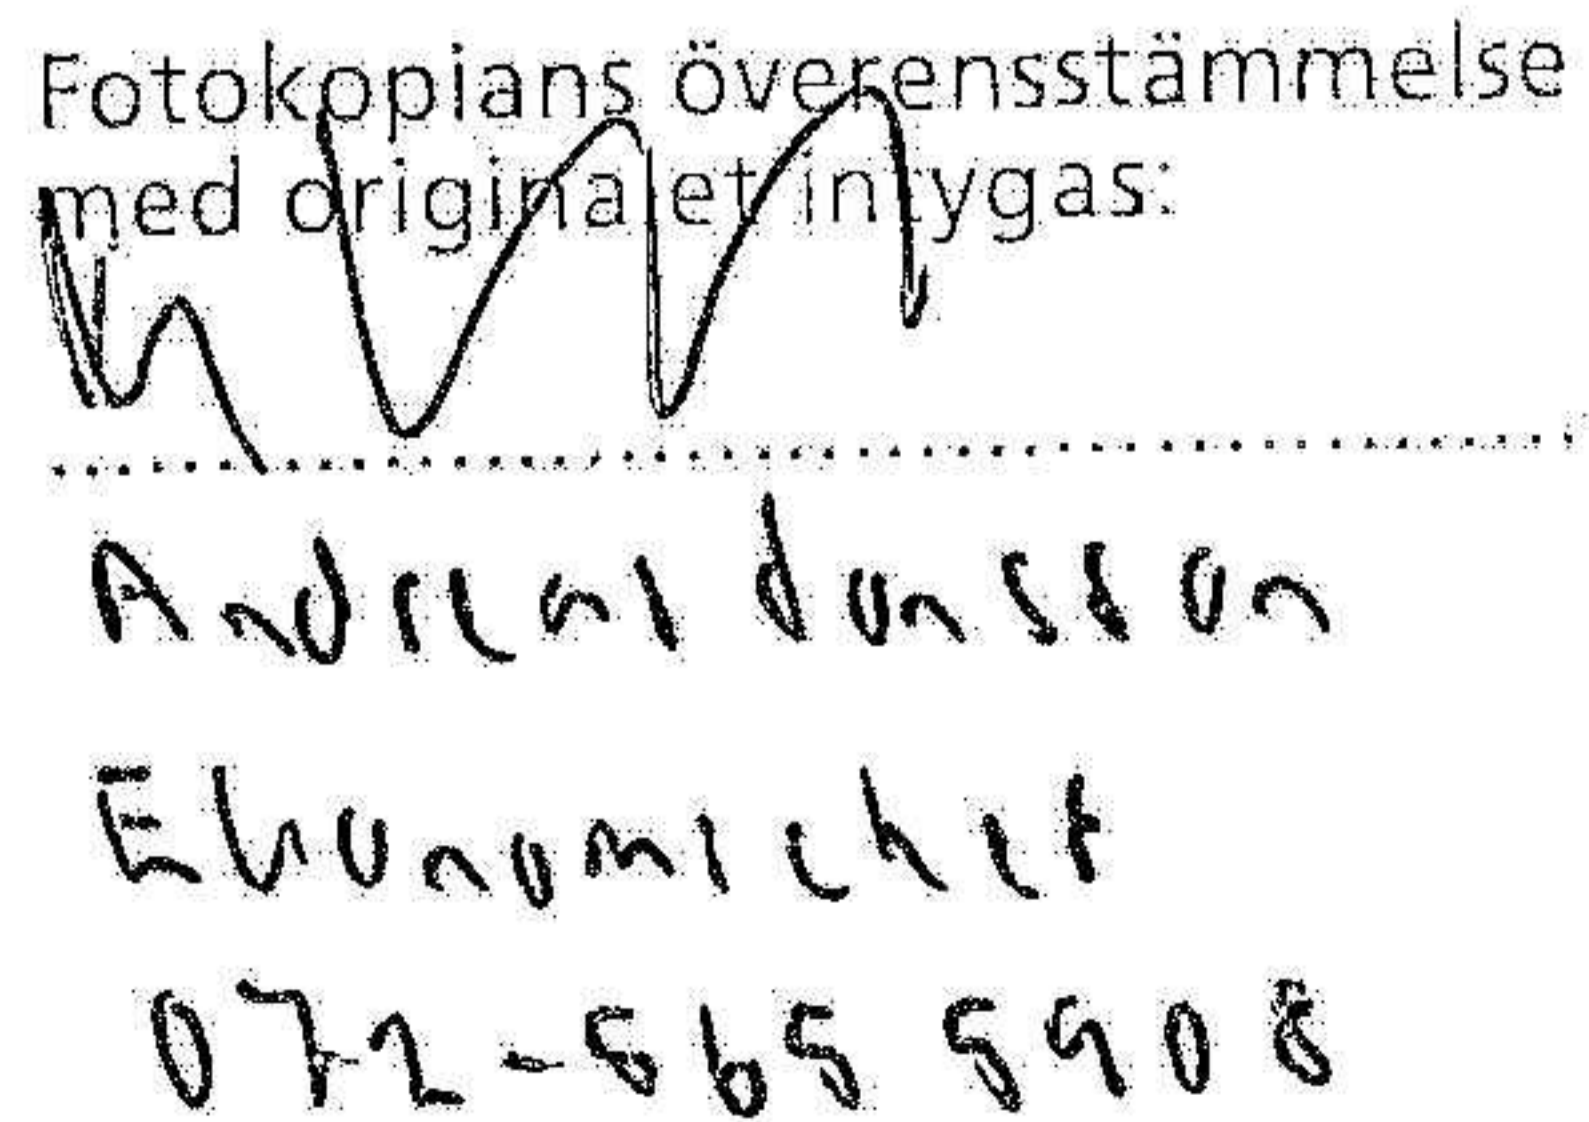 Fotokopians överensstämmelse
med originalet intygas:
Andreas Jonsson
Ekonomichef
072-565 5908